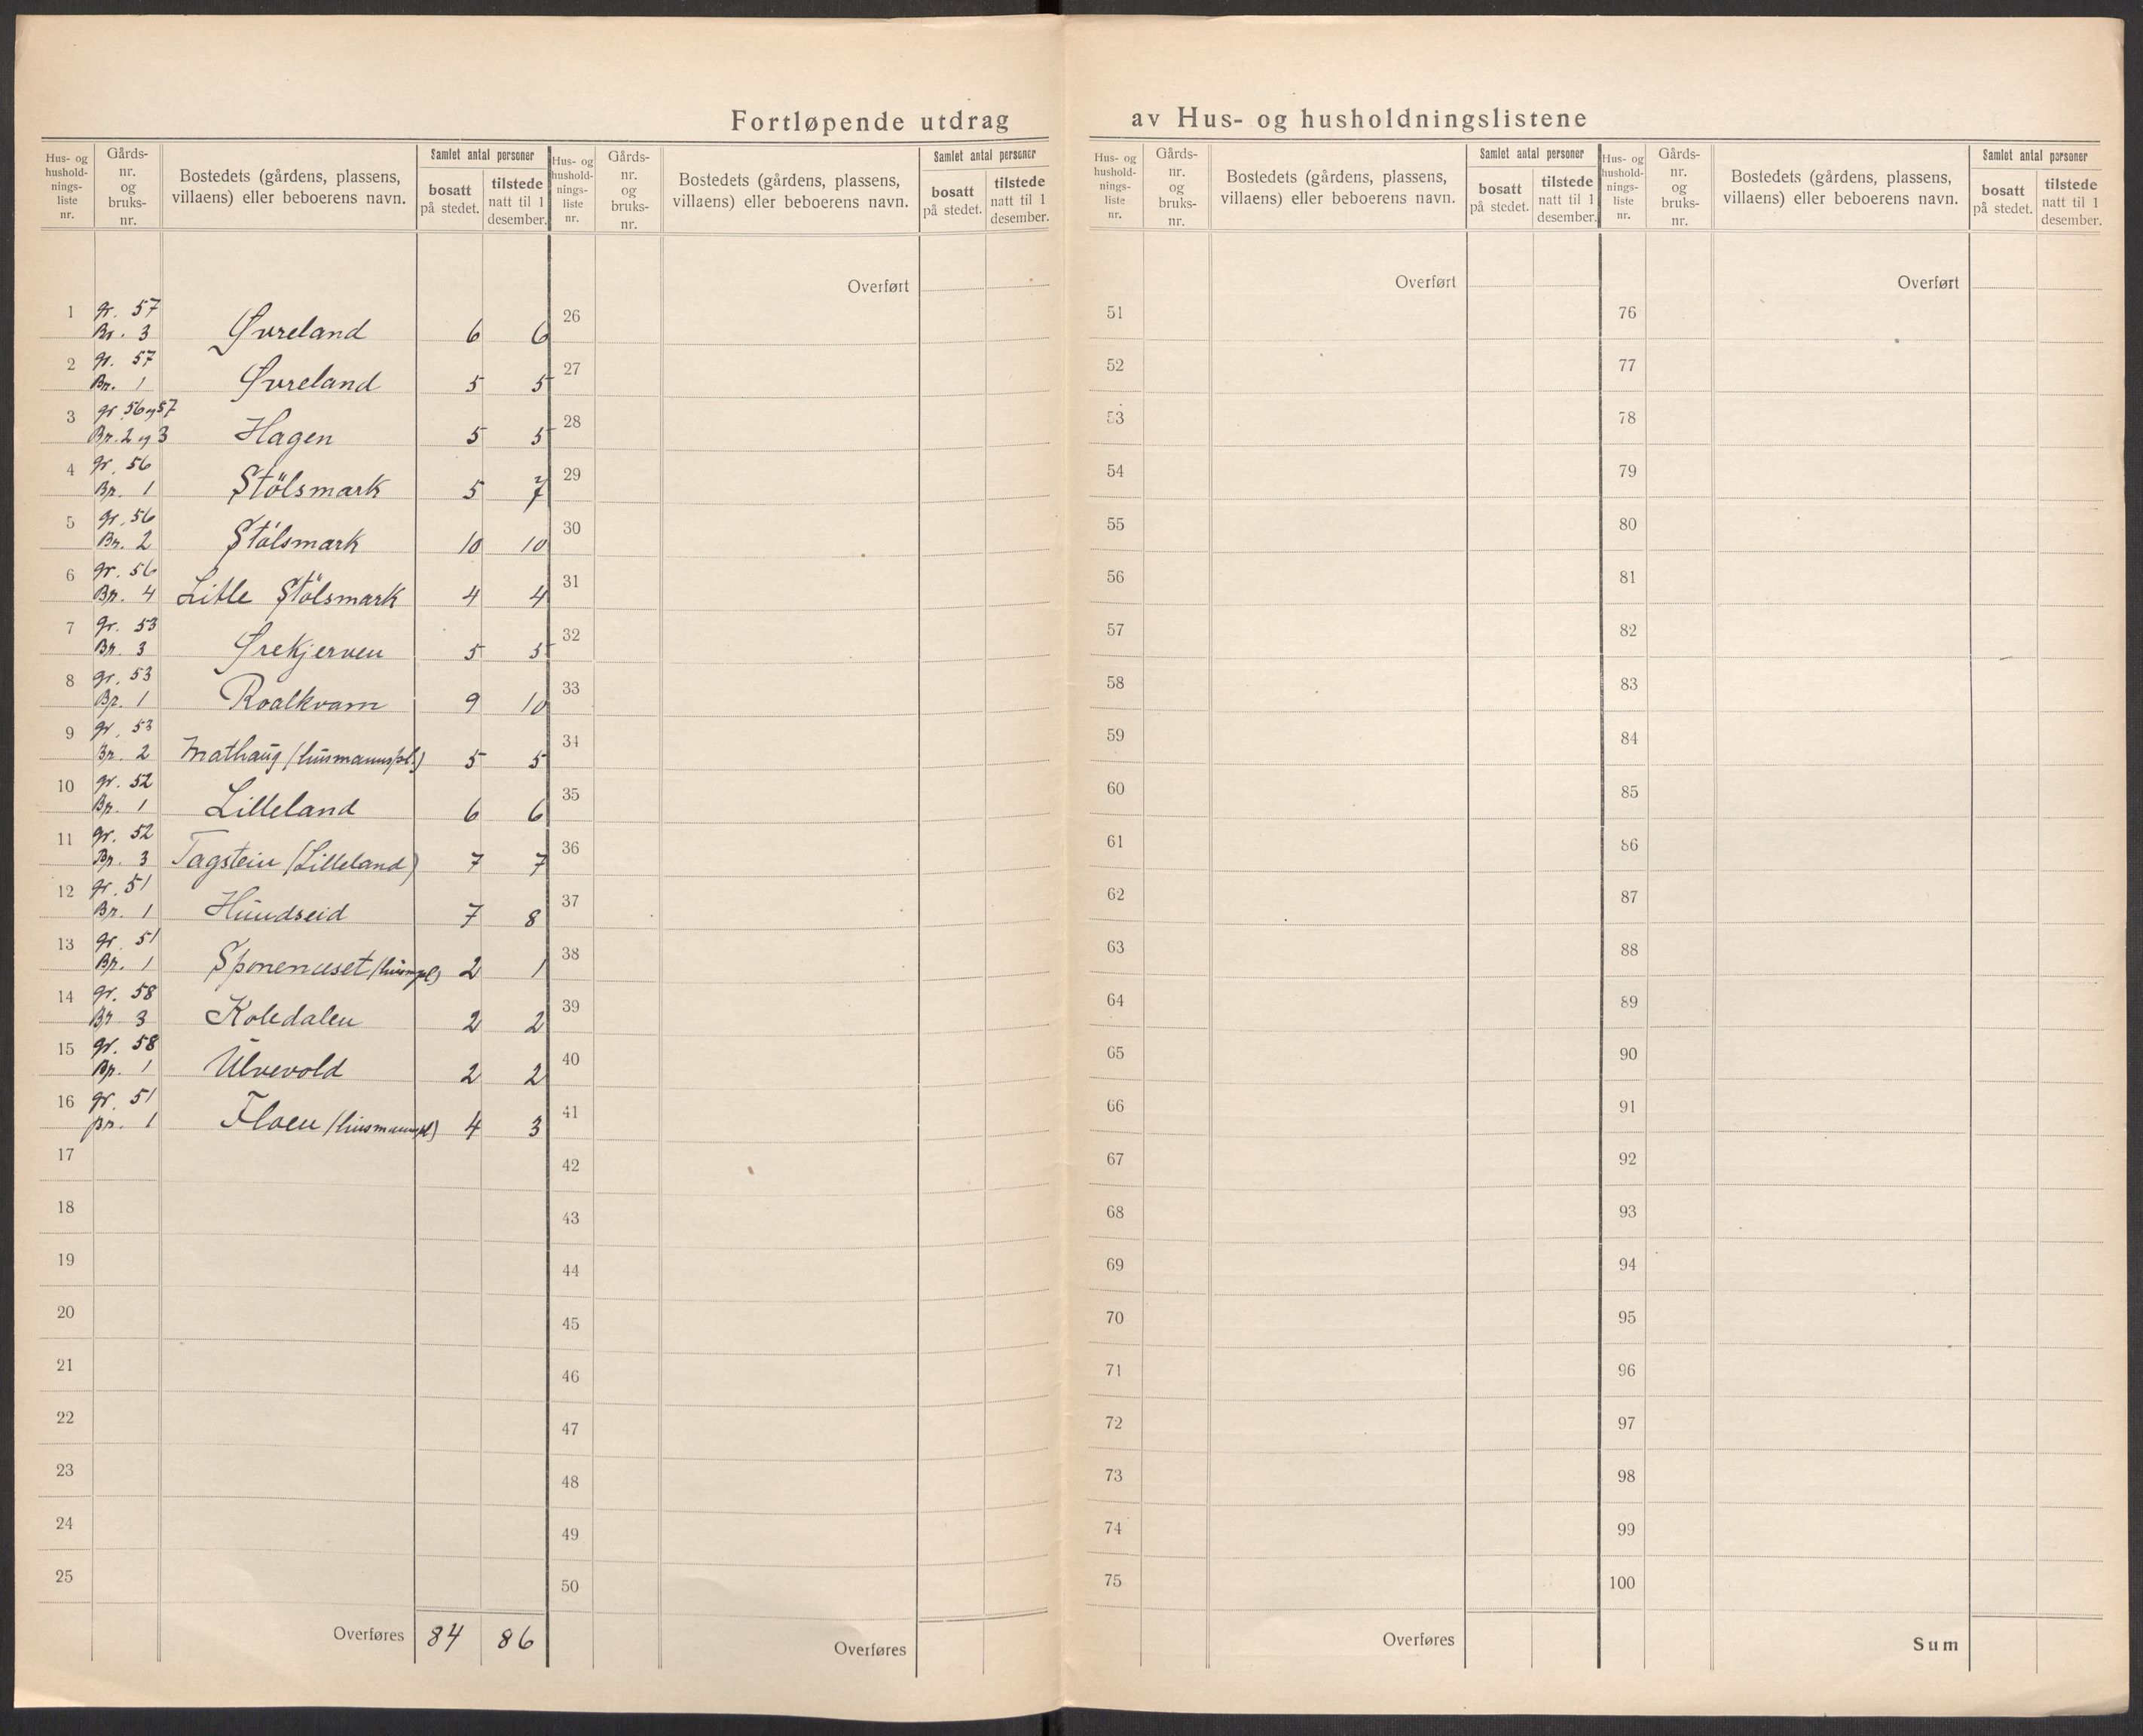 Fortløpende utdrag av Hus- og husholdningslistene
Hus- og hushold-nings-liste nr. Gårds-nr. og bruks-nr. Bostedets (gårdens, plassens, villaens) eller beboerens navn. Samlet antal personer bosatt på stedet. tilstede natt til 1 desember.
Hus- og hushold-nings-liste nr. Gårds-nr. og bruks-nr. Bostedets (gårdens, plassens, villaens) eller beboerens navn. Samlet antal personer bosatt på stedet. tilstede natt til 1 desember.
Hus- og hushold-nings-liste nr. Gårds-nr. og bruks-nr. Bostedets (gårdens, plassens, villaens) eller beboerens navn. Samlet antal personer bosatt på stedet. tilstede natt til 1 desember.
Hus- og hushold-nings-liste nr. Gårds-nr. og bruks-nr. Bostedets (gårdens, plassens, villaens) eller beboerens navn. Samlet antal personer bosatt på stedet. tilstede natt til 1 desember.
1 gr. 57 Br. 3 Øvreland 6 6
2 gr. 57 Br. 1 Øvreland 5 5
3 gr 56 og 57 Br. 2 og 3 Hagen 5 5
4 gr. 56 Br. 1 Stölsmark 5 7
5 gr. 56 Br. 2 Stölsmark 10 10
6 gr. 56 Br. 4 Litle Stölsmark 4 4
7 gr. 53 Br. 3 Ørekjerven 5 5
8 gr. 53 Br. 1 Roalkvam 9 10
9 gr. 53 Br. 2 Mathaug (husmannspl.) 5 5
10 gr. 52 Br. 1 Lilleland 6 6
11 gr. 52 Br. 3 Tagstein (Lilleland) 7 7
12 gr. 51 Br. 1 Hundseid 7 8
13 gr. 51 Br. 1 Sponeneset (husmpl) 2 1
14 gr. 58 Br 3 Koledalen 2 2
15 gr. 58 Br. 1 Ulvevold 2 2
16 gr. 51 Br. 1 Floen (husmannspl) 4 3
17
18
19
20
21
22
23
24
25
Overføres 84 86
Overført
26
27
28
29
30
31
32
33
34
35
36
37
38
39
40
41
42
43
44
45
46
47
48
49
50
Overføres
Overført
51
52
53
54
55
56
57
58
59
60
61
62
63
64
65
66
67
68
69
70
71
72
73
74
75
Overføres
Overført
76
77
78
79
80
81
82
83
84
85
86
87
88
89
90
91
92
93
94
95
96
97
98
99
100
Sum